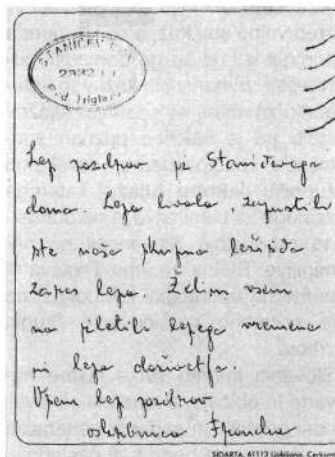 STANIČEV
2332 m
pod Triglavom
Lep pozdrav iz Staničevega
doma. Lepa hvala, zapustili
ste naša skupna ležišča
zares lepa. Želim vsem
na pletih lepega vremena
in lepa doživetja.
Vsem lep pozdrav
oskrbnica Francka
SIDARTA, 61112 Ljubljana, Cerkova